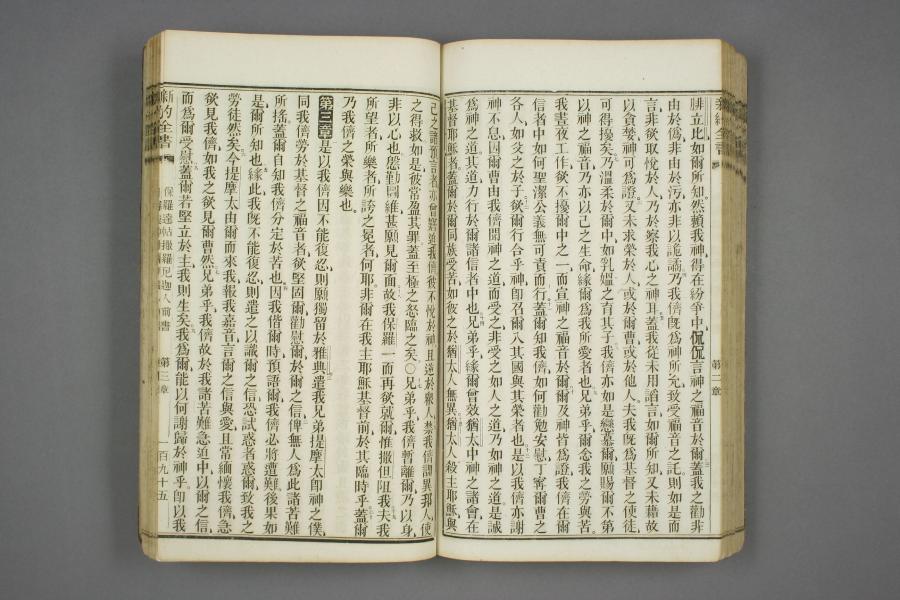 腓立比如爾所知然賴我神得在紛爭中侃侃言神之福音於爾蓋我之勸非
由於僞非由於污亦非以詭譎乃我儕旣爲神所允致受福音之託則如是而
言非欲取悅於人乃於察我心之神耳蓋我從未用諂言如爾所知又未藉故
以貪婪神可爲證又未求榮於人或於爾曹或於他人夫我旣爲基督之使徒
可得擾矣乃溫柔於爾中如乳媼之育其子我儕亦如是戀慕爾願賜爾不第
以神之福音乃亦以己之生命緣爾爲我所愛者也兄弟乎爾念我之勞與苦
我晝夜工作欲不擾爾中之一而宣神之福音於爾爾及神皆爲證我儕在爾
信者中如何聖潔公義無可責而行蓋爾知我儕如何勸勉安慰丁寧爾曹之
各人如父之於子欲爾行合乎神卽召爾入其國與其榮者也是以我儕亦謝
神不息因爾曹由我儕聞神之道而受之非受之如人之道乃如神之道是誠
爲神之道其道亦力行於爾諸信者中也兄弟乎緣爾曾效猶太中神之諸會在
基督耶穌者蓋爾於爾同族受苦如彼之於猶太人無異猶太人殺主耶穌與
新約全書
第二章
己之諸預言者亦曾窘迫我儕彼不悅於神且逆於衆人禁我儕謂異邦人使
之得救如是彼常盈其罪蓋至極之怒臨之矣○兄弟乎我儕暫離爾乃以身
非以心也慇勤圖維甚願見爾面故我保羅一而再欲就爾惟撒但阻我夫我
所望者所樂者所誇之冕者何耶非爾在我主耶穌基督前於其臨時乎蓋爾
乃我儕之榮與樂也
第三章是以我儕因不能復忍則願獨留於雅典遣我兄弟提摩太卽神之僕
同我儕勞於基督之福音者欲堅固爾勸慰爾於爾之信俾無人爲此諸苦難
所搖蓋爾自知我儕分定於苦也因我偕爾時預語爾我儕必將遭難後果如
是爾所知也緣此我旣不能復忍則遣之以識爾之信恐試惑者惑爾致我之
勞徒然矣今提摩太由爾而來我報我嘉音言爾之信與愛且常緬懷我儕急
欲見我儕如我之欲見爾曹然兄弟乎我儕故於我諸苦難急迫中以爾之信
而爲爾受慰蓋爾若堅立於主我則生矣我爲爾能以何謝歸於神乎卽以我
新約全書
保羅達帖撒羅尼迦人前書
第三章
一百九十五